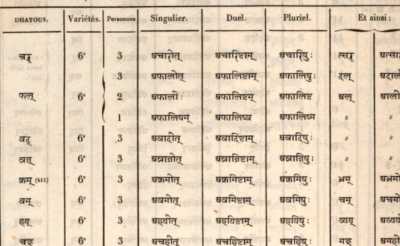 DHATOUS. Variétés. Personnes Singulier. Duel. Pluriel. Et ainsi :
चर् 6ᵉ 3 अचारीत् अचारिष्टाम् अचारिषुः त्सर्
3 अफालीत् अफालिष्टाम् अफालिषुः दल्
फल् 6ᵉ 2 अफालीः अफालिष्टम् अफालिष्ट
1 अफालिषम् अफालिष्व अफालिष्म " "
वद् 6ᵉ 3 अवादीत् अवादिष्टाम् अवादिषुः " "
व्रज् 6ᵉ 3 अव्राजीत् अव्राजिष्टाम् अव्राजिषुः " "
क्रम् (XII) 6ᵉ 3 अक्रमीत् अक्रमिष्टाम् अक्रमिषुः भ्रम्
वम् 6ᵉ 3 अवमीत् अवमिष्टाम् अवमिषुः चम्
हय् 6ᵉ 3 अहयीत् अहयिष्टाम् अहयिषुः व्यय्
चह् 6ᵉ 3 अचहीत् अचहिष्टाम् अचहिषुः मह्